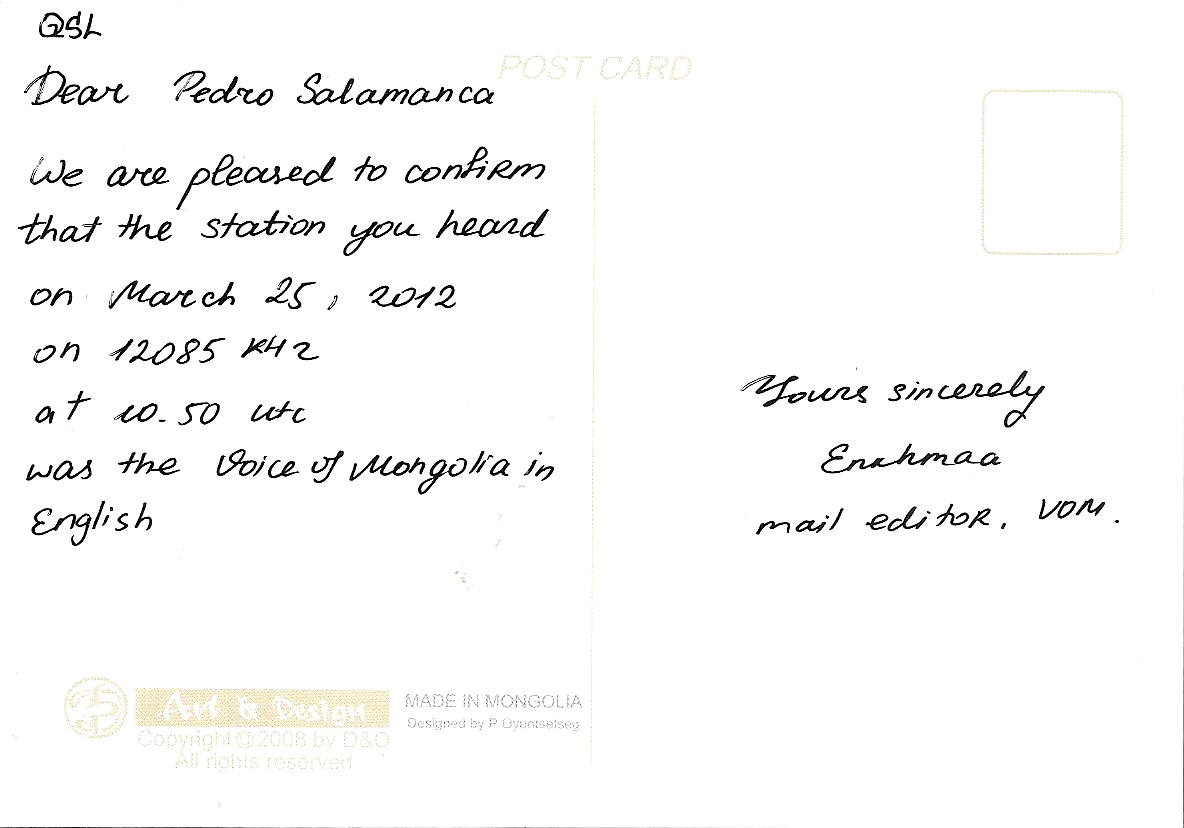 QSL
POST CARD
Dear Pedro Salamanca
We are pleased to confirm
that the station you heard
on March 25, 2012
on 12085 kHz
at 10.50 utc
was the Voice of Mongolia in
English
Yours sincerely
Enkhmaa
mail editor, VOM.
Art & Design
Copyright © 2008 by D&O
All rights reserved
MADE IN MONGOLIA
Designed by P.Oyuntsetseg